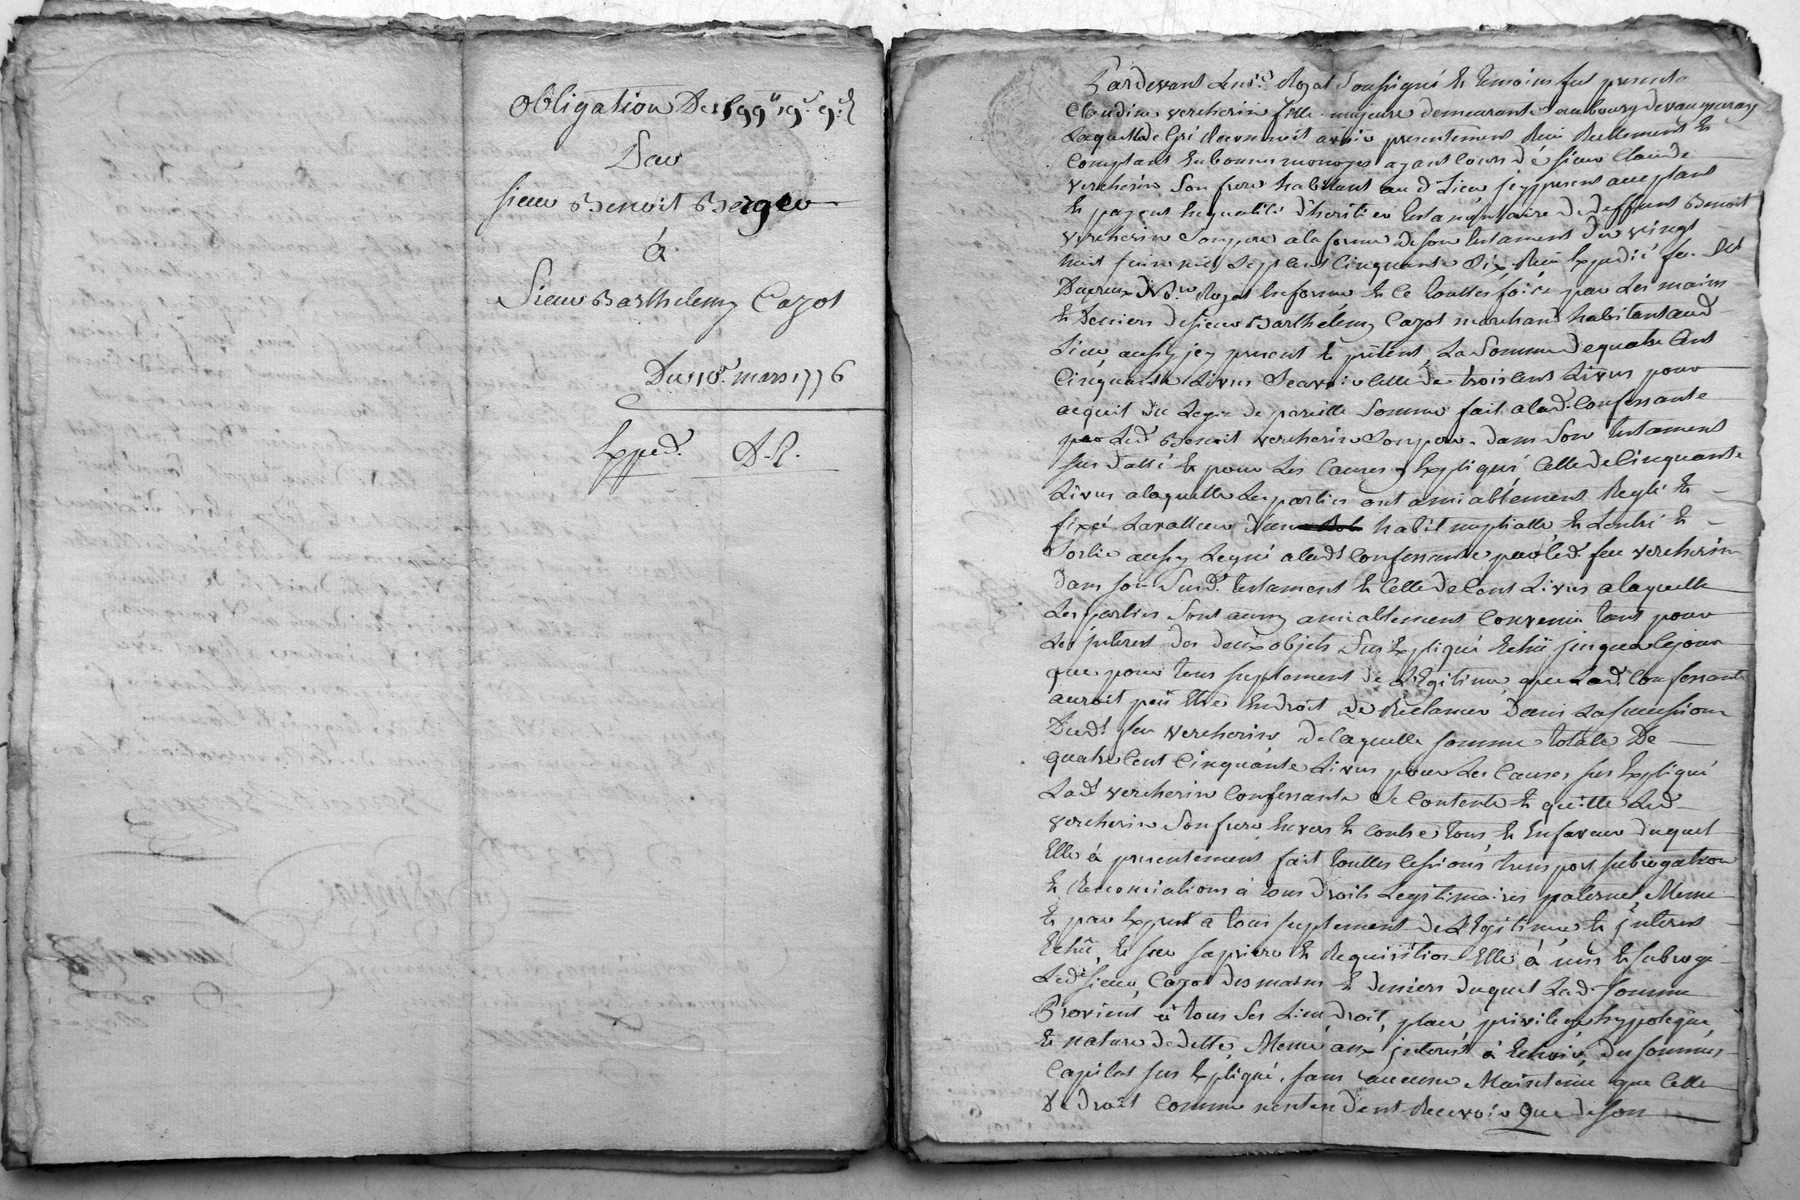 Obligation De 599ˡ 19ˢ 9ᵈ
Par
sieur Benoit Berger
à
Sieur Barthelemy Cazot
Du 10ᵉ. mars 1776
Exped. D.R.
Pardevant le noᵉ. Royal Soussigné et temoins fut presente
Claudine vercherin fille majeure demeurante au bourg de vaugneray
Laquelle de gré reconnoit avoir presentement Reçu Reellement et
Comptant en bonnes monoyes ayant cours de sieur Claude
vercherin Son frere habitant aud. Lieu jcy present acceptant
et payant en qualité d'heritier testamentaire de deffunt Benoit
vercherin Son pere a la forme de son testament du vingt
huit juin mil sept cent Cinquante Six, Reçu et Expedié feu Mᵉ
Dupeux Noᵉ. Royal en forme et ce touttes fois par Les mains
et Deniers de sieur Barthelemy Cazot marchand habitant aud.
Lieu, aussy jcy present et prètent, La Somme de quatre Cent
Cinquante Livres Scavoir Celle de trois Cent Livres pour
acquit du Legs de pareille Somme fait a lad. Confessante
par Led. Benoit vercherin Son pere dans Son testament
sus datté et pour Les Causes y Expliqué Celle de Cinquante
Livres a laquelle Les parties ont amiablement Reglé et
fixé La valleur d'un habit nuptialle et Lentré et
Sortie aussy Legué a lad. Confessante par led. feu vercherin
dans son Susd. testament et Celle de Cent Livres a laquelle
Les parties Sont aussy amiablement Convenu tant pour
Les jnterest des deux objets Sus Expliqué Echü jusqua Ce jour
que pour tous suplement de Legitime que Lad. Confessante
auroit peü Etre En droit de Reclamer dans La Sucession
Dud. feu vercherin de laquelle somme totale De
quatre Cent Cinquante Livres pour Les Causes sus Expliqué
Lad. vercherin Confessante Se Contente et quitte Led.
vercherin Son frere Envers et Contre tous et En faveur duquel
Elle à presentement fait touttes Cessions, transport subrogation
et Renonciations à tous droits Legitimaires paternel, Meme
et par Exprest à tous suplement de Legitime et jnterest
Echü, et sur sa priere et Requisition Elle à mis et subrogé
Led. sieur Cazot des mains et deniers duquel Lad. somme
Provient à tous Ses Lieu, droit, place, privilege hypoteque,
et nature de dette, Meme aux jnterest à Echoir des sommes
Capital sus Expliqué, sans aucune Maintenüe que Celle
De droit Comme n'entendent Recevoir que de son